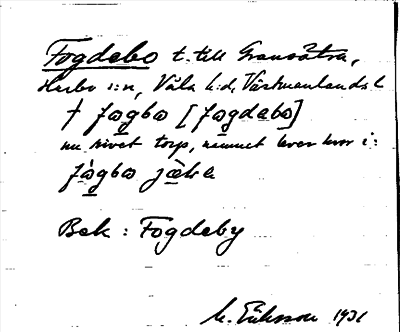 Fogdebo t. till Gransätra,
Harbo s:n, Våla h:d, Västmanlands l
† fogbo [fogdebo]
nu rivet torp, namnet lever kvar i:
fògbo jä̀ka
Bek: Fogdeby
M. Eriksson 1931